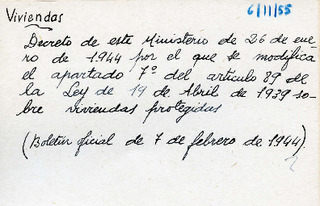 Viviendas
6/11/55
Decreto de este Ministerio de 26 de ene-
ro de 1944 por el que se modifica
el apartado 7º del articulo 89 de
la Ley de 19 de Abril de 1939 so-
bre viviendas protegidas
(Boletin oficial de 7 de febrero de 1944)